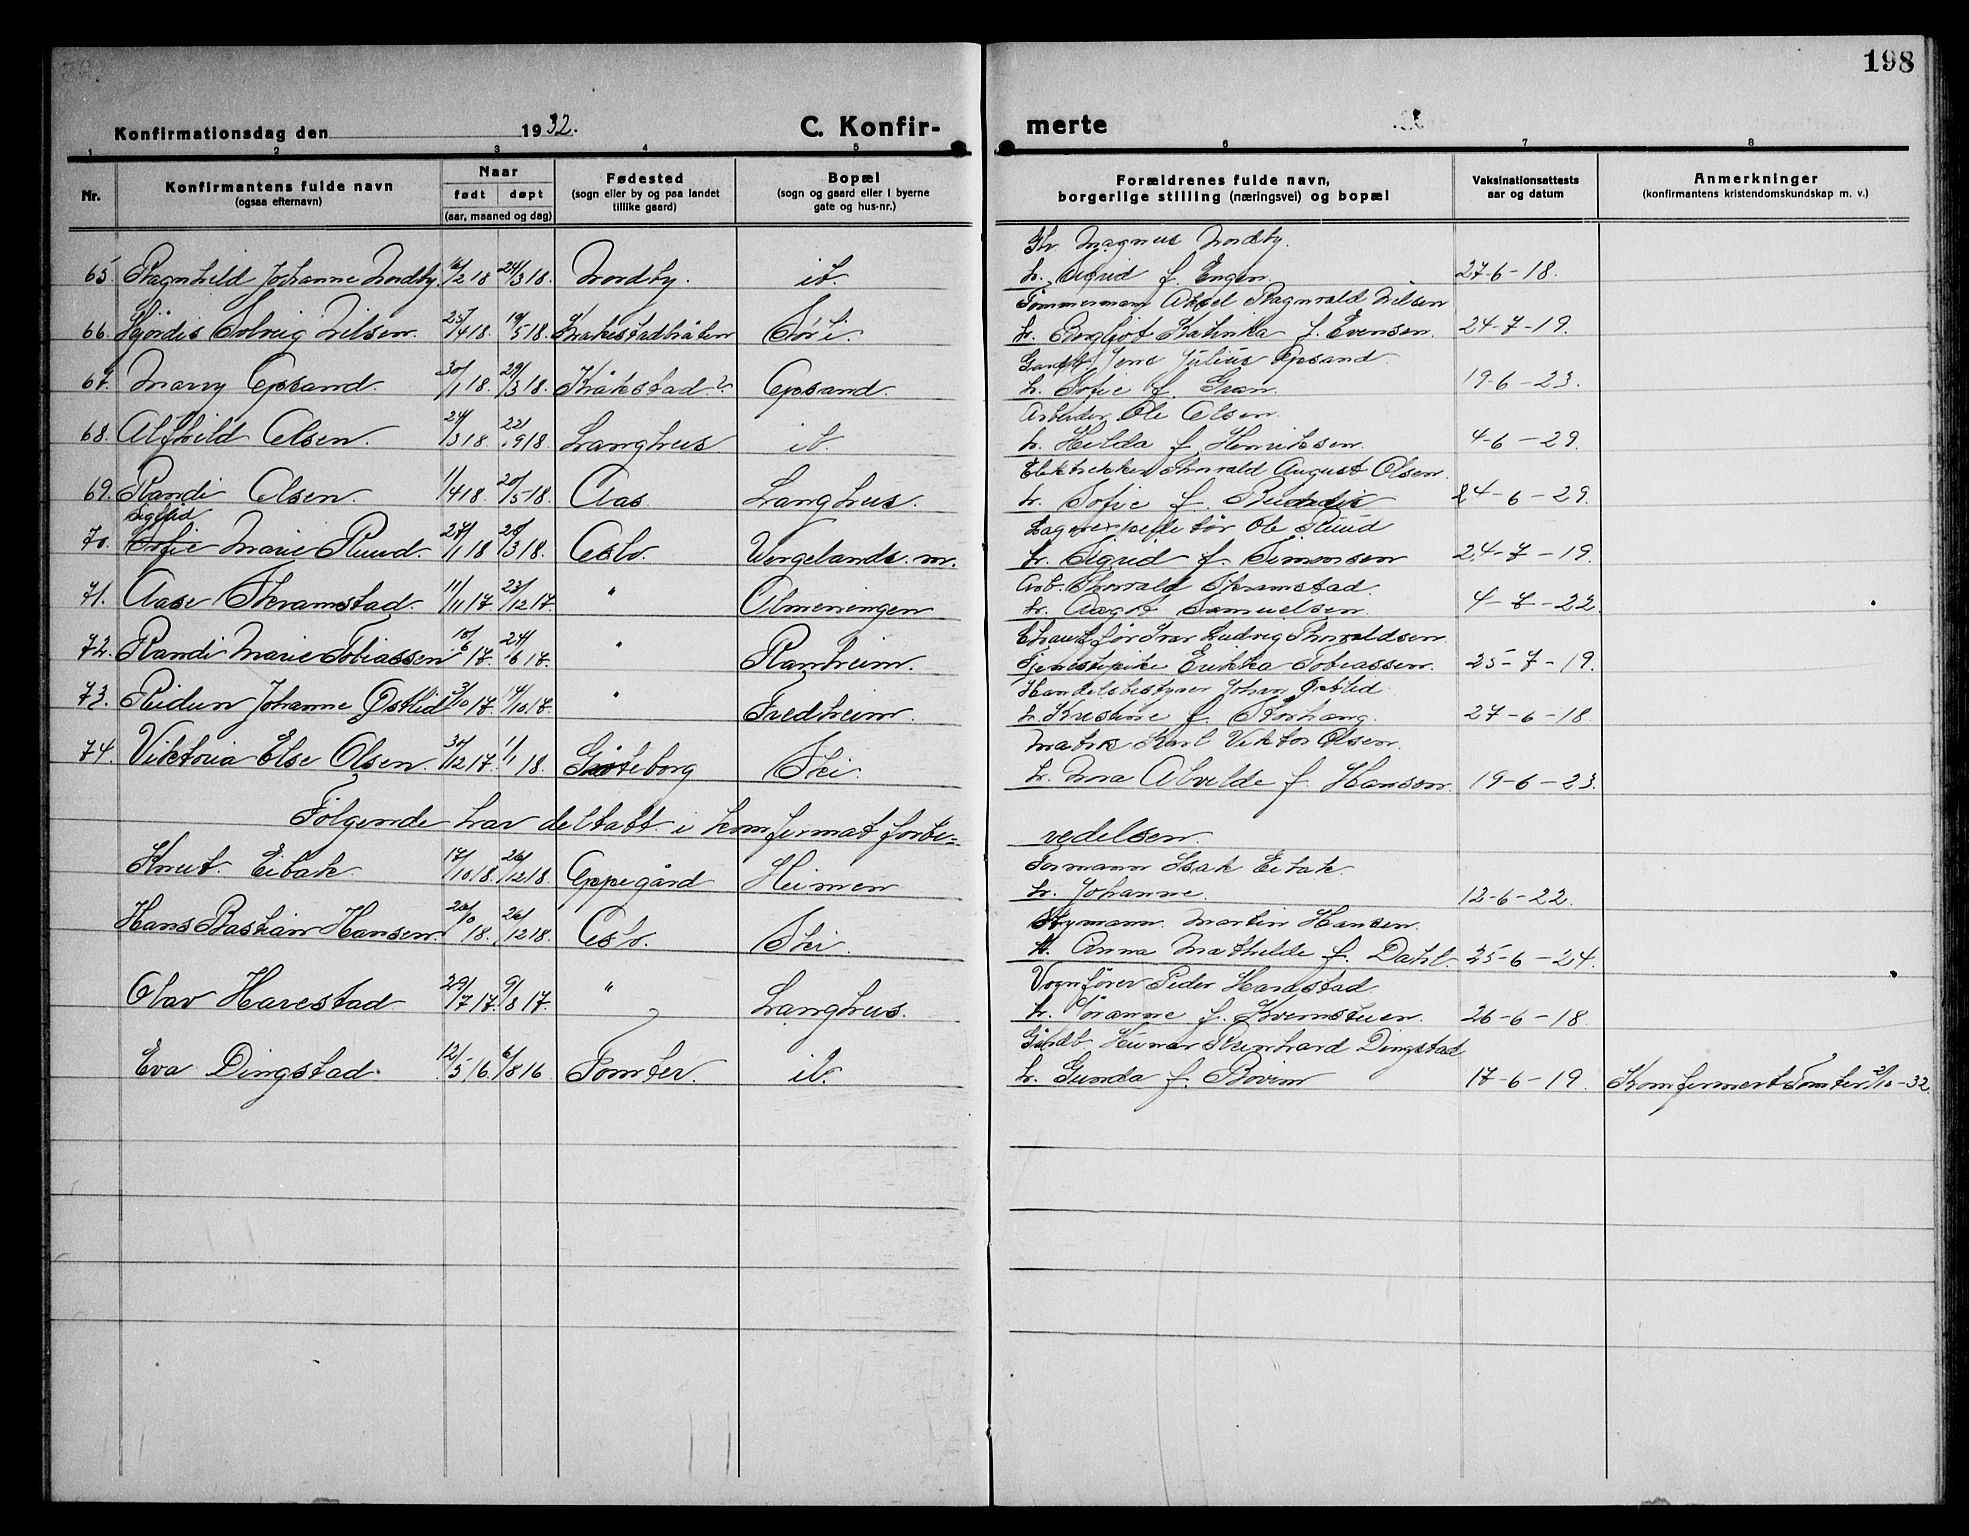 198
Konfirmationsdag den 1932. C. Konfir- merte
1 2 3 4 5 6 7 8
Nr. Konfirmantens fulde navn (ogsaa efternavn) Naar født døpt (aar, maaned og dag) Fødested (sogn eller by og paa landet tillike gaard) Bopæl (sogn og gaard eller i byerne gate og hus-nr.) Forældrenes fulde navn, borgerlige stilling (næringsvei) og bopæl Vaksinationsattests aar og datum Anmerkninger (konfirmantens kristendomskundskap m. v.)
Magnus Nordby.
65. Ragnhild Johanne Nordby 16/2 18 24/3 18. Nordby. ib. h. Sigrid f. Engen 27-6-18.
Tømmermann Aksel Ragnvald Nilsen
66. Hjørdis Solveig Nilsen. 25/4 18. 19/5 18. Kråkstadbråten Ski. h. Borghot Katinka f. Evensen. 24-7-19.
Gaardb. Jens Julius Opsand.
67. Marry Opsand. 30/1 18. 29/3 18. Kråkstad? Opsand. h. Sofie f. Gran. 19-6-23.
Arbeider Ole Olsen.
68. Alfhild Olsen. 24/3 18 22/9 18. Langhus ib. h. Hilda f. Henriksen. 4-6-29.
Elektriker Thorvald August Olsen.
69. Randi Olsen. 1/4 18. 20/5 18. Aas. Langhus. h. Sofie f. 24-6-29.
Siglid Lagerexpeditør Ole Ruud
70. Sofie Marie Ruud. 27/1 18 28/3 18. Oslo. Vergelands. m. h. Sigrid f. Simonsen 24-7-19.
Arb. Thorvald Skramstad.
71. Aase Skramstad. 11/11 17 23/12 17 " Almeningen h. Aagot Samuelsen. 4-7-22.
Chauffør Ivar Ludvig Thorvaldsen.
72. Randi Marie Tobiassen 10/6 17. 24/6 17. " Ranheim. Tjenestepike Erikka Tobiassen. 25-7-19.
Handelsbestyrer Johan Østlid.
73. Reidun Johanne Østlid 3/10 17. 14/10 17. " Fredheim. h. Kristine f. Korhaug. 27-6-18
Matr. Karl Viktor Olsen.
74. Viktoria Else Olsen. 30/12 17. 1/1 18. Gøteborg Ski. h. Nora Alvilde f. Hanson. 19-6-23.
Følgende har deltatt i konfirmat forbe- redelsen.
Formann Isak Eibak.
Knut. Eibak 17/10 18. 26/12 18. Oppegård Heimen h. Johanne. 12-6-22.
Styrmann. Martin Hansen.
Hans Bastian Hansen. 20/10 18. 26/12 18. Oslo. Ski. h. Anna Mathilde f. Dahl. 25-6-24.
Vognfører Peder Harestad
Olav Harestad 29/7 17. 9/8 17. " Langhus. h. Jøranne f. Kvemstuen. 26-6-18.
Gårdb. Heinar Reinhard Dingstad
Eva Dingstad. 12/5 16. 6/8 16 Tomter. ib. h. Gunda f. Bovim 17-6-19. Konfermert Tomter 2/10-32.